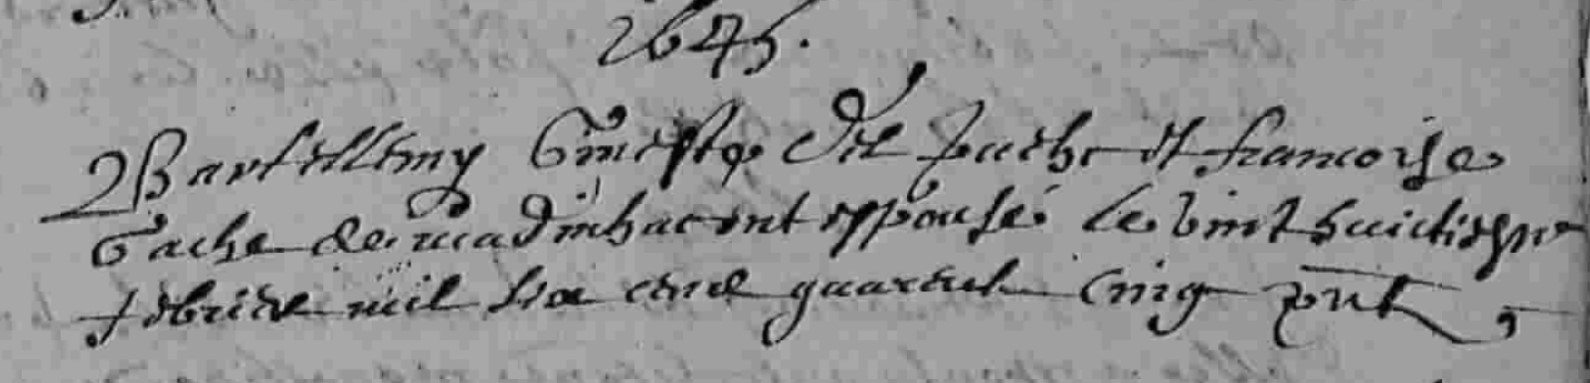 1645.
Barthellemy Ginesty del puech et francoise
Vache de madinhac ont esppousé le vint huictiesme
febvrier mil six cens quarante cinq pnts